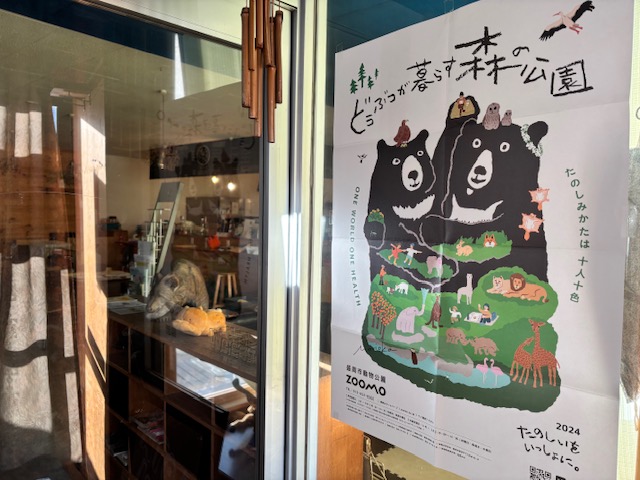 どうぶつが暮らす森の公園
たのしみかたは 十人十色
ONE WORLD ONE HEALTH
盛岡市動物公園
ZOOMO
2024
たのしいを
いっしょに。